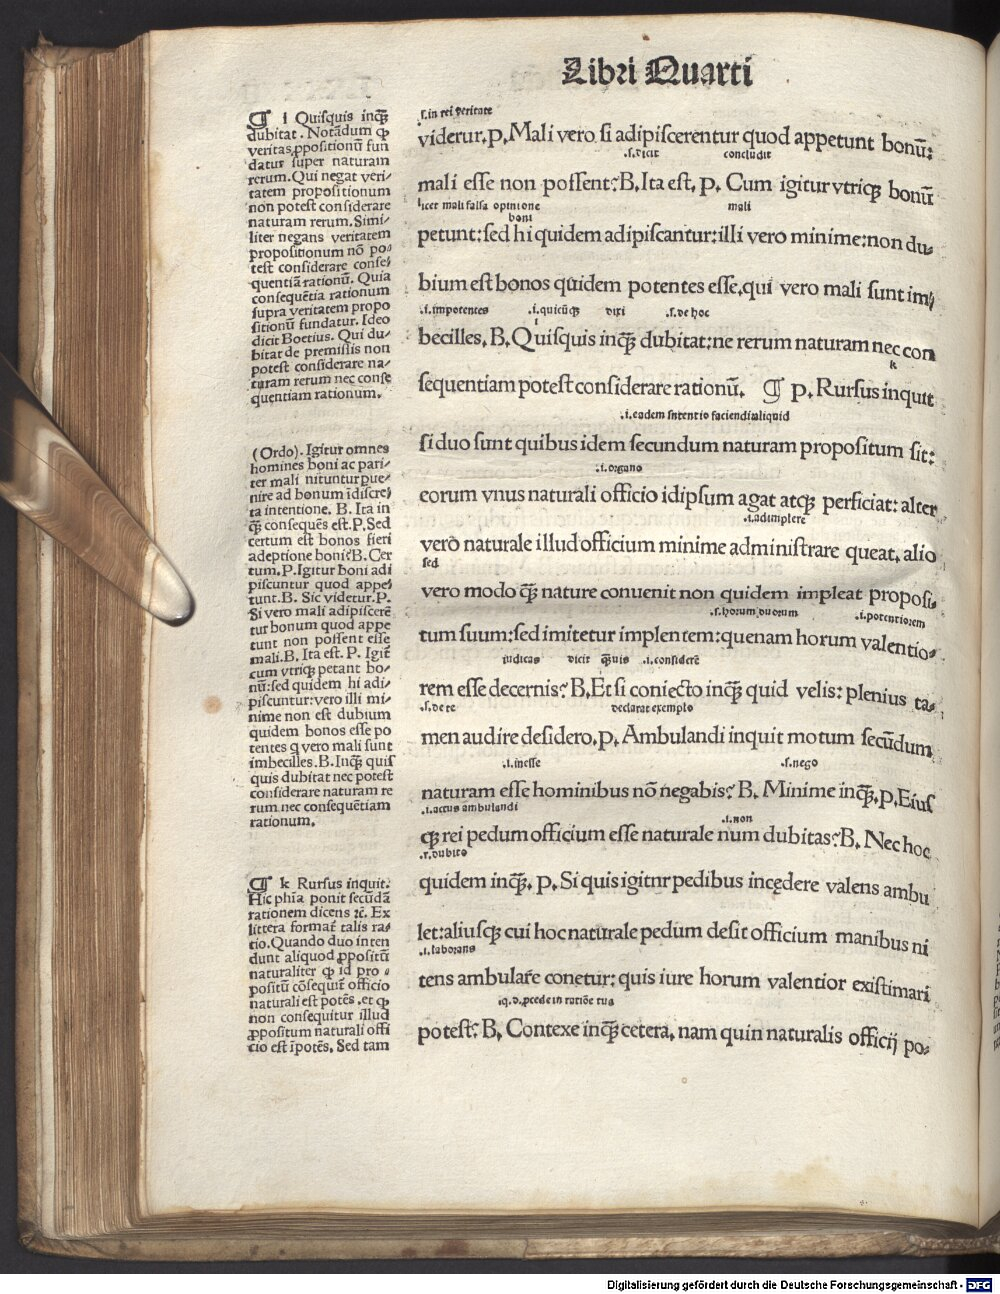 Libri Quarti
¶ i Quisquis inqꝫ
dubitat. Notãdum ꝙ
veritas ꝓpositionũ fun
datur super naturam
rerum. Qui negat veri-
tatem propositionum
non potest considerare
naturam rerum. Simi-
liter negans veritatem
propositionum nõ po-
test considerare conse-
quentiã rationũ. Quia
consequẽtia rationum
supra veritatem propo
sitionũ fundatur. Ideo
dicit Boetius. Qui du-
bitat de premissis non
potest considerare na-
turam rerum nec conse
quentiam rationum.
(Ordo). Igitur omnes
homines boni ac pari-
ter mali nituntur pue-
nire ad bonum ĩdiscre-
ta intentione. B. Ita in
qꝫ consequẽs est. P. Sed
certum est bonos fieri
adeptione boni? B. Cer
tum. P. Igitur boni adi
piscuntur quod appe-
tunt. B. Sic videtur. P.
Si vero mali adipiscerẽ
tur bonum quod appe
tunt non possent esse
mali. B. Ita est. P. Igit̃
cum vtriqꝫ petant bo-
nũ: sed quidem hi adi-
piscuntur: vero illi mi-
nime non est dubium
quidem bonos esse po
tentes q̃ vero mali sunt
imbecilles. B. Inqꝫ quis
quis dubitat nec potest
considerare naturam re
rum nec consequẽtiam
rationum.
¶ k Rursus inquit.
Hic phĩa ponit secũdã
rationem dicens ꝛc̃. Ex
littera format̃ talis ra-
tio. Quando duo inten
dunt aliquod ꝓpositũ
naturaliter ꝙ id pro-
positũ cõsequit̃ officio
naturali est potẽs. et ꝙ
non consequitur illud
ꝓpositum naturali offi
cio est ĩpotẽs. Sed tam
.s. in rei veritate
videtur. P. Mali vero si adipiscerentur quod appetunt bonũ:
.s. dicit concludit
mali esse non possent? B. Ita est. P. Cum igitur vtriqꝫ bonũ
licet mali falsa opinione mali
boni
petunt: sed hi quidem adipiscantur: illi vero minime: non du-
bium est bonos quidem potentes esse. qui vero mali sunt im-
.i. impotentes .i. quicũqꝫ dixi .s. de hoc
i
becilles. B. Quisquis inqꝫ dubitat: ne rerum naturam nec con
k
sequentiam potest considerare rationũ. ¶ P. Rursus inquit
.i. eadem intentio faciendi aliquid
si duo sunt quibus idem secundum naturam propositum sit:
.i. organo
eorum vnus naturali officio id ipsum agat atqꝫ perficiat: alter
.i. adimplere
vero naturale illud officium minime administrare queat. alio
sed
vero modo qꝫ nature conuenit non quidem impleat proposi-
.s. horum duorum .i. potentiorem
tum suum: sed imitetur implentem: quenam horum valentio-
iudicas dicit quis .i. considerẽ
rem esse decernis? B. Et si coniecto inqꝫ quid velis: plenius ta-
.s. de te declarat exemplo
men audire desidero. P. Ambulandi inquit motum secũdum
.i. inesse .s. nego
naturam esse hominibus nõ negabis? B. Minime inqꝫ. P. Eius
.i. actus ambulandi .i. non
qꝫ rei pedum officium esse naturale num dubitas? B. Nec hoc
.s. dubito
quidem inqꝫ. P. Si quis igitnr pedibus incedere valens ambu
let: aliusqꝫ cui hoc naturale pedum desit officium manibus ni
.i. laborans
tens ambulare conetur: quis iure horum valentior existimari
.q.d. ꝓcede in ratiõe tua
potest? B. Contexe inqꝫ cetera. nam quin naturalis officij po-
Digitalisierung gefördert durch die Deutsche Forschungsgemeinschaft - DFG